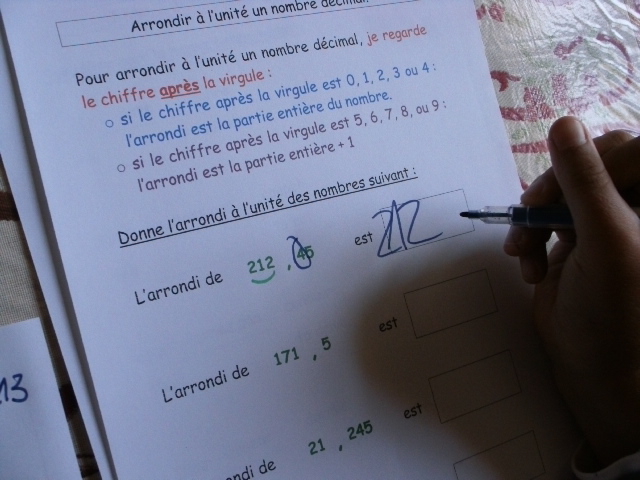 Arrondir à l'unité un nombre décimal.
Pour arrondir à l'unité un nombre décimal, je regarde
le chiffre après la virgule :
o si le chiffre après la virgule est 0, 1, 2, 3 ou 4 :
l'arrondi est la partie entière du nombre.
o si le chiffre après la virgule est 5, 6, 7, 8, ou 9 :
l'arrondi est la partie entière + 1
Donne l'arrondi à l'unité des nombres suivant :
L'arrondi de 212 , 45 est 212
L'arrondi de 171 , 5 est
ndi de 21 , 245 est
13